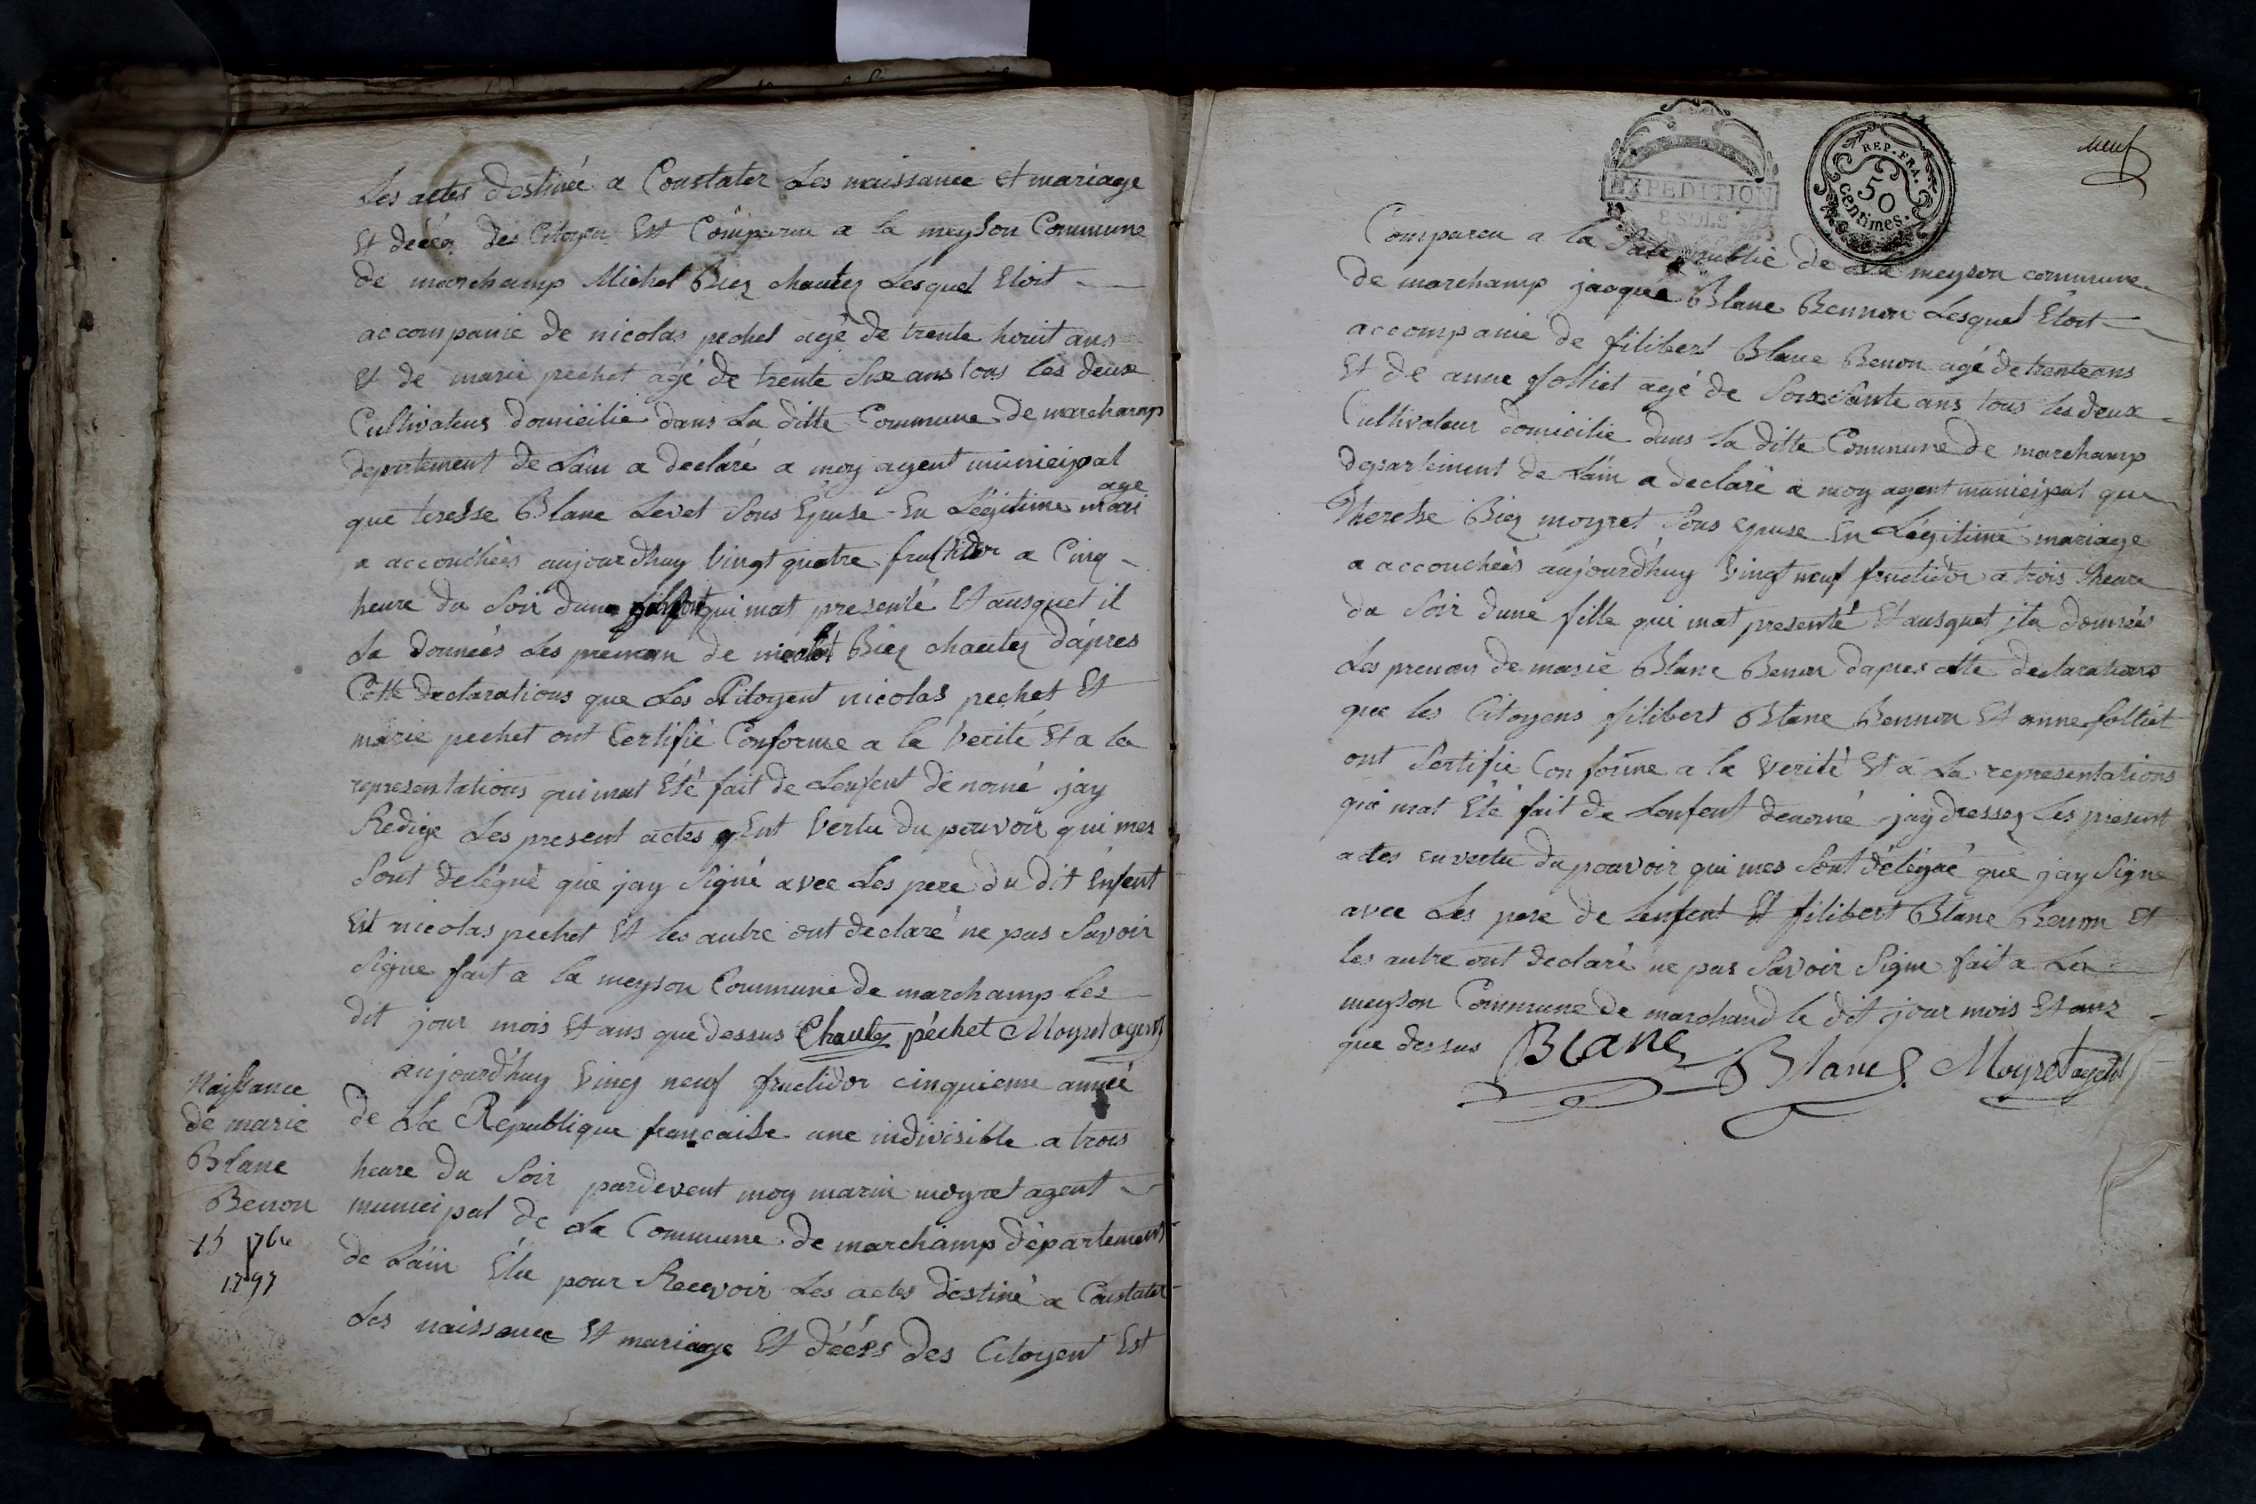 Les actes destinée a Constater Les naissance et mariage
Et décéz des Citoyen Est Comparu a la meyson Commune
de marchamp Michel Biez chautez Lesquel Etoit
accompanie de nicolas pechet agé de trente houit ans
Et de marie pechet agé de trente Sixe ans tous les deux
Cultivateur domicilie dans La ditte Commune de marchamp
departement de Lain a declaré a moy agent municipal
que teresse Blanc Levet Sous Epuse En Légitime mari
age
a accouchéés aujourdhuy Vingt quatre fructidor a Cinq
heure du Soir dune qui mat presenté Et ausquet il
La donnéés Les prenom de Biez chautez dápres
Cette declarations que Les Citoyent nicolas pechet Et
marie pechet ont Certifié Conforme a la Verité Et a la
representations qui mat Eté fait de Lenfent dénomé jay
Redige Les present actes Ent Vertu du pouvoir qui mes
Sont delégué que jay Signé avec Les pere du dit Enfent
Est nicolas pechet Et les autre ont declaré ne pas Savoir
Signe fait a la meyson Commune de marchamp Les
dit jour mois Et ans que dessus Chautez péchet Moyret agent
Naissance
de marie
Blanc
Benon
15 7bre
1797
aujourdhuy Vingt neuf fructidor cinquieme année
de La Republique francaise une indivisible a trois
heure du Soir pardevent moy marin moyret agent
municipal de La Commune de marchamp départemens
de Láin Elu pour Recevoir Les actes destiné a Constater
Les naissance Et mariage Et décés des Citoyent Est
EXPEDITION
8 SOLS
REP. FRA.
50
Centimes.
neuf
Comparcu a la Sale publie de La meyson commune
de marchamp jacque Blanc Bennon Lesquel Etoit
accompanie de filibert Blanc Benon agé de trente ans
Et de anne folliet agé de Soixsante ans tous les deux
Cultivateur domicilie dans la ditte Commune de marchamp
departement de Láin a declaré a moy agent municipal que
Therese Biez moyret Sous epuse En Légitime mariage
a accouchéés aujourdhuy Vingt neuf fructidor a trois heure
du Soir dune fille qui mat presenté Et ausquet jla donnéés
Les prenom de marie Blanc Benon dapres cette declarations
que les Citoyens filibert Blanc Bennon Et anne folliet
ont Sertifié Conforme a la Verité Et a La representations
qui mat Eté fait de Lenfent denomé jay dressez Les present
actes en vertu du pouvoir qui mes Sont délégué que jay Signe
avec Les pere de Lenfent Et filibert Blanc Benon Et
les autre ont declaré ne pas Savoir Signe fait a La
meyson Commune de marchand le dit jour mois Et ans
que dessus Blanc Blanc Moyret agent